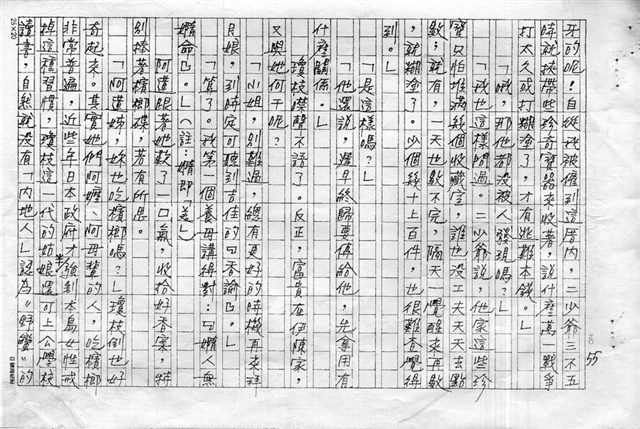 牙的呢！自從我被僱到這厝內，二少爺三不五
時就挾帶些珍奇寶器來收著，說什麼萬一戰爭
打太久或打糊塗了，才有逃難本錢。」
「哦，那他都沒被人發現嗎？」
「我也這樣問過。二少爺說，他家這些珍
寶只怕堆滿幾個收藏室，誰也没工夫天天去點
數；就有，一天也數不完，隔天一覺醒來再數
，就糊塗了。少個幾十上百件，也很難查覺得
到。」
「是這樣嗎？」
「他還說，遲早終歸要傳給他，先拿用有
什麼關係。」
瓊枝噤聲不語了。反正，富貴在伊陳家，
又與她何干呢？
「小姐，別難過，總有更好的時機再來拜
月娘，到時定可聽到吉佳的『香諭』。」
「算了。我第一個養母講得對：『媠人無
媠命』。」（註：媠即「美」）
阿蓮跟著她歎了一口氣，收拾好香案，特
別捧著檳榔碟，若有所思。
「阿蓮姊，妳也吃檳榔嗎？」瓊枝倒也好
奇起來。其實她們阿嬤、阿母輩的人，吃檳榔
非常普遍，近些年日本政府才強制本島女性戒
掉這種習慣，瓊枝這一代的姑娘還可上公學校
讀書，自然就没有「内地人」認為〝野蠻〞的
55
25×20